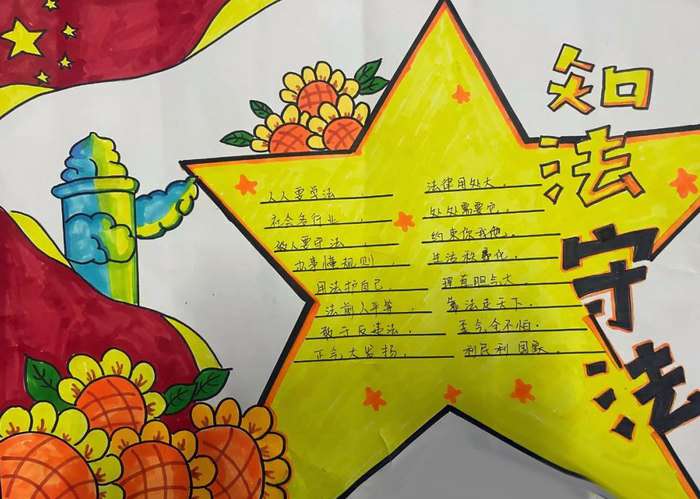 知法守法
人人要受法
社会各行业
做人要守法
办事懂规则
用法护自己
法前人平等
敢于反违法
正气大发扬
法律用处大
处处需要它
约束你我他
生活秩序化
理直胆气大
靠法走天下
歪气全不怕
利民利国家